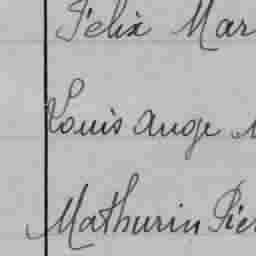 Félix Mar
Louis Ange
Mathurin Pier